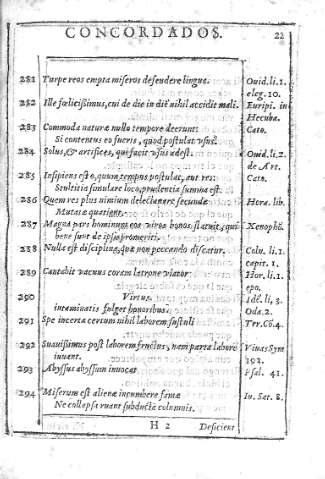 CONCORDADOS. 22
281 Turpe reos empta miseros defendere lingua. Ouid. li. 1.
eleg. 10.
282 Ille fœlicissimus, cui de die in diē nihil accidit mali. Euripi. in
Hecuba.
283 Commoda naturæ nullo tempore deerunt: Cato.
Si contentus eo fueris, quod postulat vsus.
284 Solus, & artifices, qui facit vsus adest. Ouid. li. 2.
de Art.
285 Insipiens esto, quum tempus postulat, aut res: Cato.
Stultitia simulare loco, prudentia summa est.
286 Quem res plus nimium delectauere secundæ Hora. lib.
Mutatæ quatient.
287 Magna pars hominum eos viros bonos statuit, qui Xenophō.
bene sunt de ipsis promeriti.
288 Nulla est disciplina, quæ non peccando discatur. Colu. li. 1.
capit. 1.
289 Cantabit vacuus coram latrone viator: Hor. li. 1.
epo.
290 Virtus, Idē. li, 3.
intaminatis fulget honoribus. Oda. 2.
291 Spe incerta certum mihi laborem sustuli Ter. C6. 4.
292 Suauissimus post laborem fructus, nam parta labore Vinas Sym
iuuent. 192.
293 Abyssus abyssum inuocat Psal. 41.
294 Miserum est alienæ incumbere famæ Iu. Sat. 8.
Ne collapsa ruant subductis columnis.
H 2 Deficient